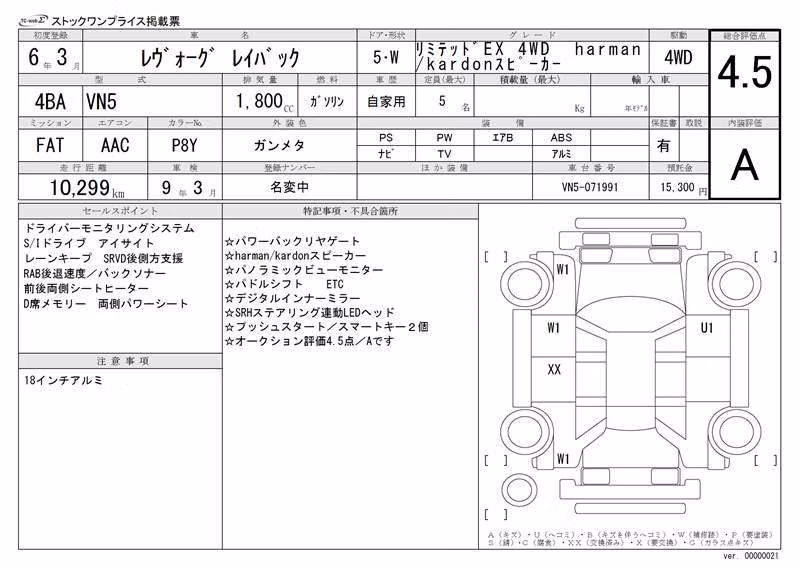 TC-webΣ ストックワンプライス掲載票
初度登録 車名 ドア・形状 グレード 駆動 総合評価点
6年3月 レヴォーグ レイバック 5・W リミテッドEX 4WD harman/kardonスピーカー 4WD 4.5
型式 排気量 燃料 車歴 定員(最大) 積載量(最大) 輸入車
4BA VN5 1,800CC ガソリン 自家用 5名 Kg 年モデル
ミッション エアコン カラーNo. 外装色 装備 保証書 取説 内装評価
FAT AAC P8Y ガンメタ PS PW エアB ABS 有 A
ナビ TV アルミ
走行距離 車検 登録ナンバー ほか装備 車台番号 預託金
10,299km 9年3月 名変中 VN5-071991 15,300円
セールスポイント
ドライバーモニタリングシステム
S/Iドライブ アイサイト
レーンキープ SRVD後側方支援
RAB後退速度/バックソナー
前後両側シートヒーター
D席メモリー 両側パワーシート
注意事項
18インチアルミ
特記事項・不具合箇所
☆パワーバックリヤゲート
☆harman/kardonスピーカー
☆パノラミックビューモニター
☆パドルシフト ETC
☆デジタルインナーミラー
☆SRHステアリング連動LEDヘッド
☆プッシュスタート/スマートキー2個
☆オークション評価4.5点/Aです
[ ] W1 [ ]
W1 U1
XX
[ ] W1 [ ]
[ ]
A(キズ)・U(ヘコミ)・B(キズを伴うヘコミ)・W(補修跡)・P(要塗装)
S(錆)・C(腐食)・XX(交換済み)・X(要交換)・G(ガラス点キズ)
ver. 00000021